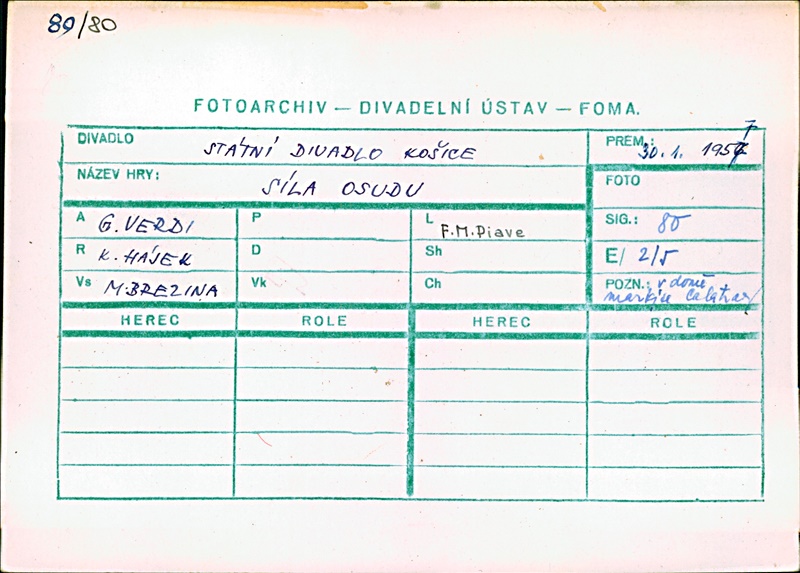 89/80
FOTOARCHIV — DIVADELNÍ ÚSTAV — FOMA.
DIVADLO STÁTNÍ DIVADLO KOŠICE
PREM.: 30. 1. 1957
NÁZEV HRY: SÍLA OSUDU
FOTO
A G. VERDI P L F.M.Piave
SIG.: 80
R K. HÁJEK D Sh
E/ 2/5
Vs M. BREZINA Vk Ch
POZN.: v domě
markíze
HEREC ROLE HEREC ROLE